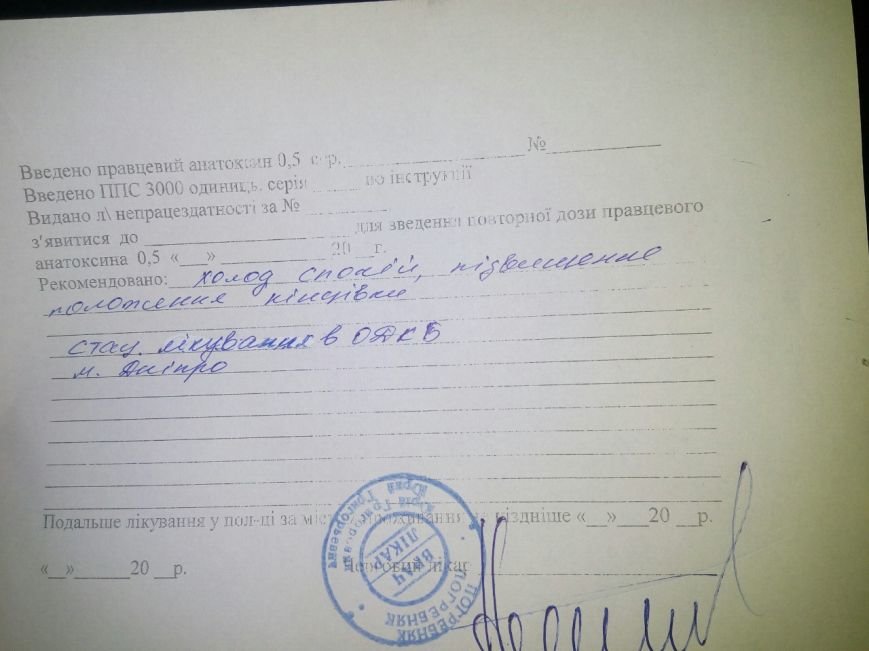 Введено правцевий анатоксин 0,5 сер. ____ № ____
Введено ППС 3000 одиниць. серія ____ по інструкції
Видано л\ непрацездатності за № ____
з'явитися до ____ для зведення повторної дози правцевого
анатоксина 0,5 «__» ____ 20 __г.
Рекомендовано: холод спокій, підвищенне
положення кінцівки
стац. лікування в ОДКБ
м. Дніпро
Подальше лікування у пол-ці за місцем проживання не пізніше «__»___20 __р.
«__»______20 __р. Черговий лікар
ПОГРЕБНЯК
ПОГРЕБНЯК
Юрий Григорьевич
Юрій Григорович
ВРАЧ
ЛІКАР